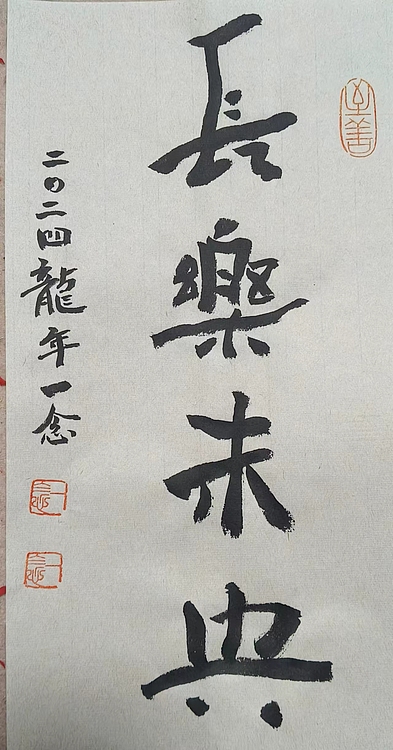 至善
長樂未央
二〇二四龍年一念